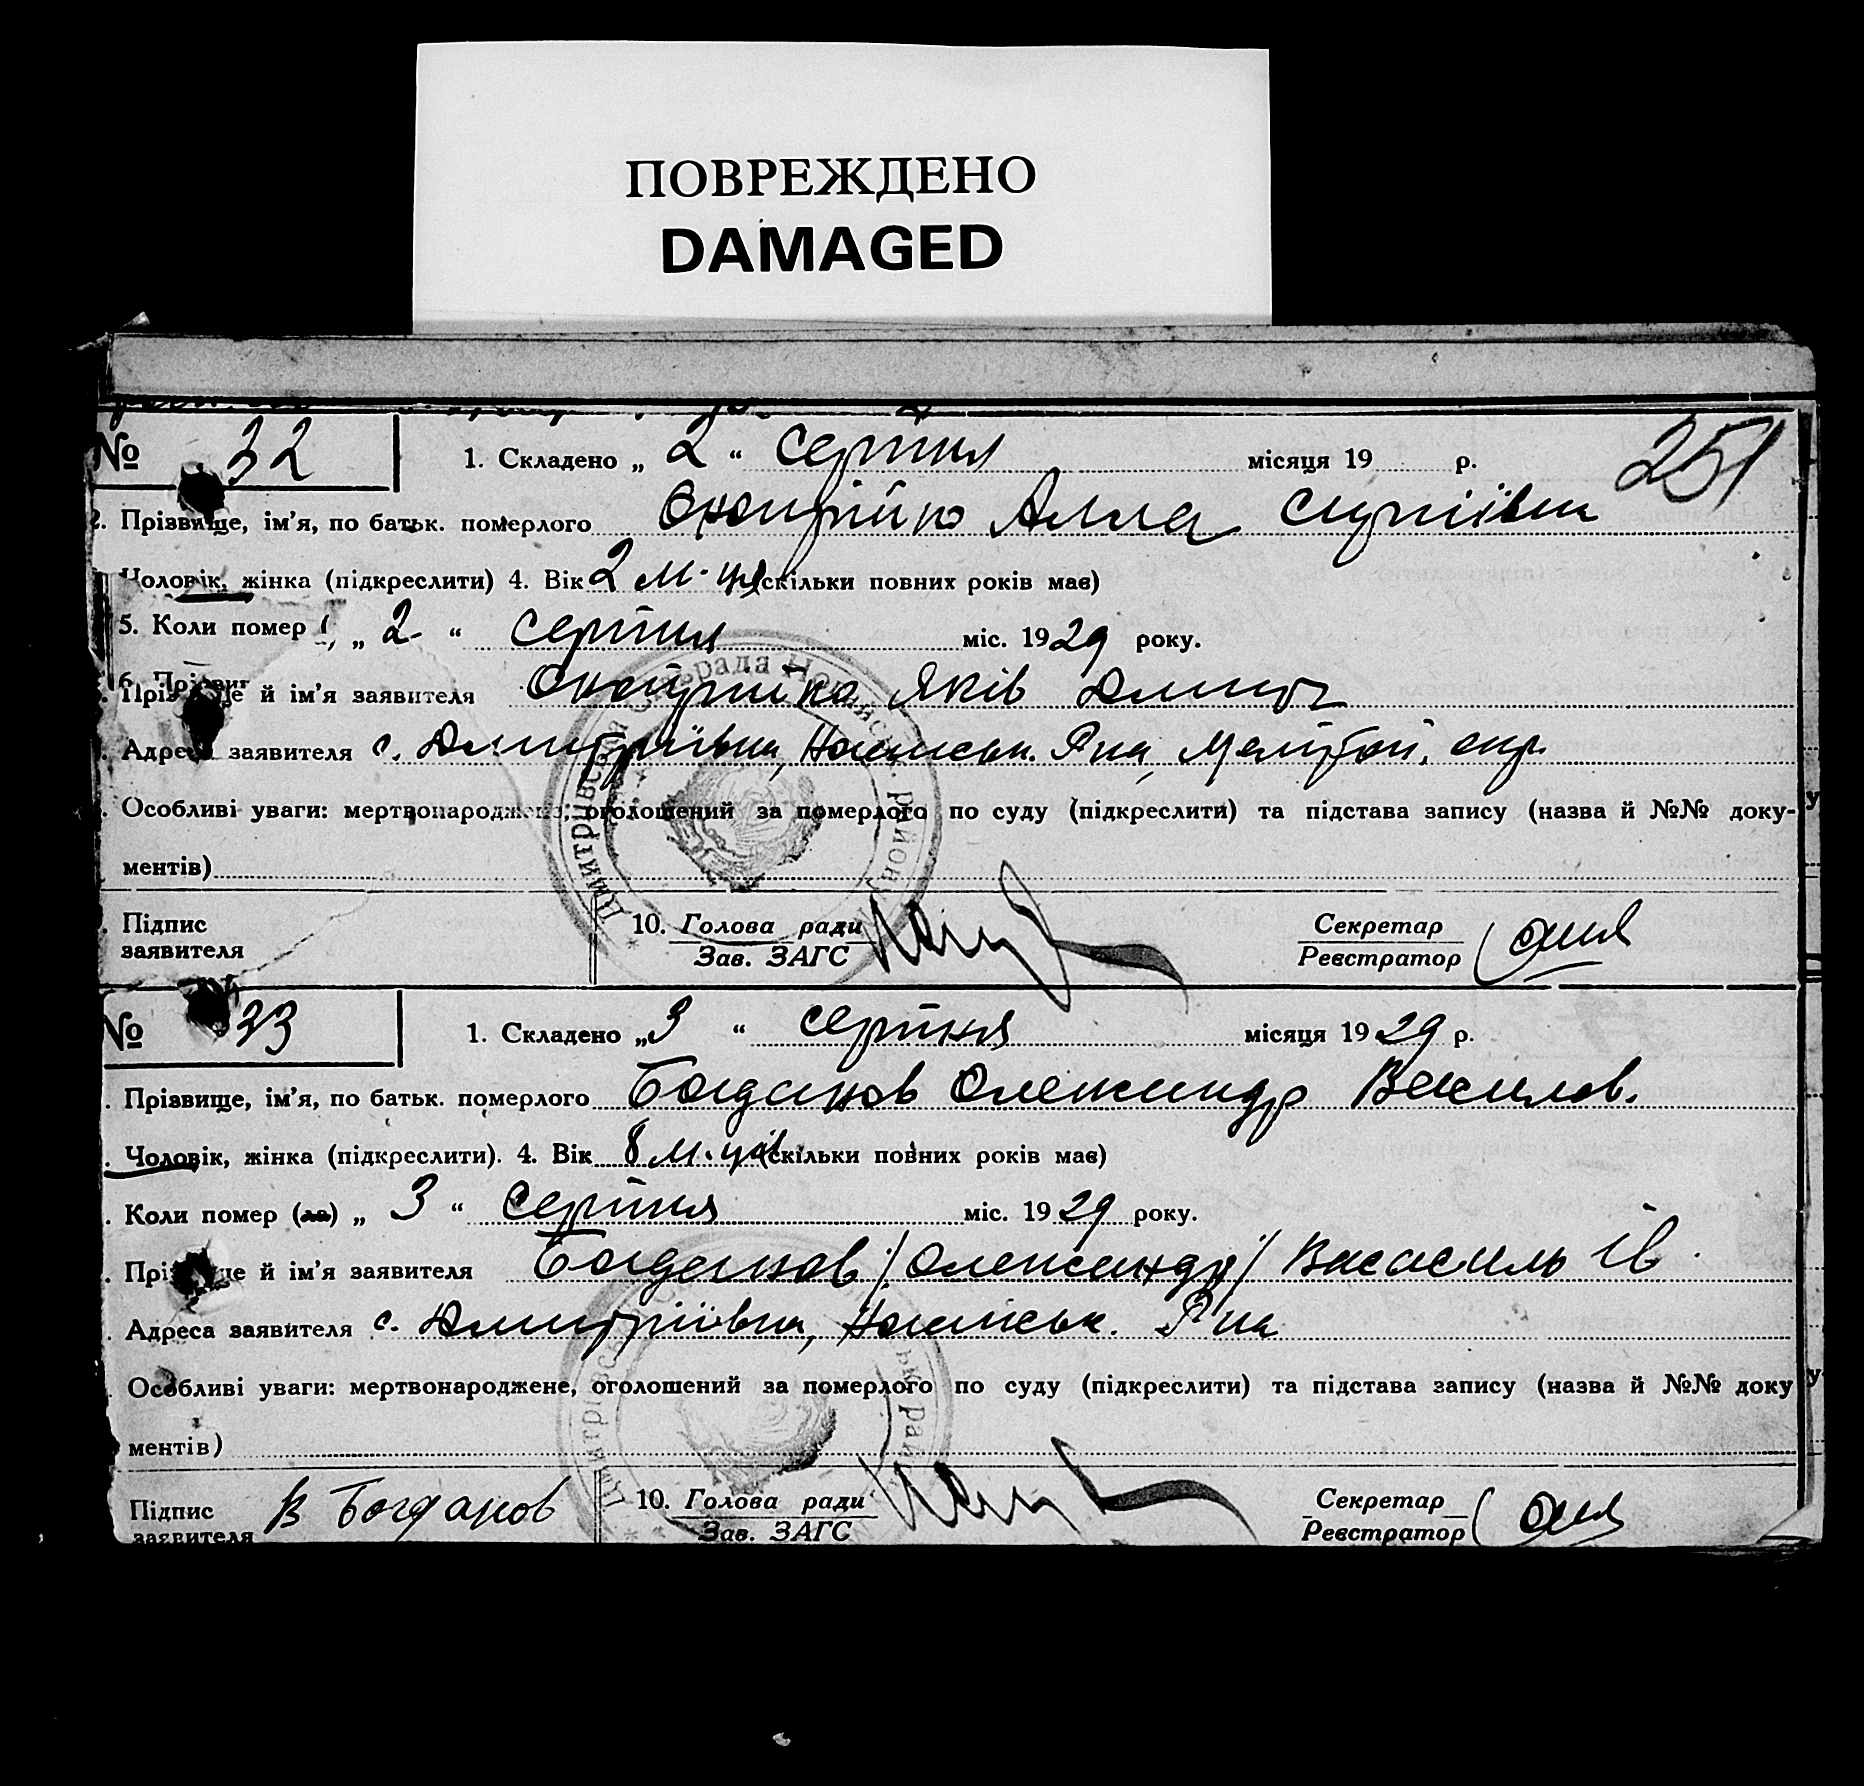 ПОВРЕЖДЕНО
DAMAGED
№ 32 1. Складено „ 2 “ серпня місяця 19 р. 251
2. Прізвище, ім’я, по батьк. померлого Алла
Чоловік, жінка (підкреслити) 4. Вік 2 м-ця (скільки повних років має)
5. Коли помер „ 2 “ серпня міс. 1929 року.
Прізвище й ім’я заявителя Яків
Адреса заявителя с. Дмитрівка, Ногайськ. Р-на, Мелітоп. окр.
Особливі уваги: мертвонароджене, оголошений за померлого по суду (підкреслити) та підстава запису (назва й №№ доку-
ментів)
Підпис 10. Голова ради Секретар
заявителя Зав. ЗАГС Реєстратор
№ 33 1. Складено „3 “ серпня місяця 1929 р.
. Прізвище, ім’я, по батьк. померлого Богданов Олександр Васильов.
. Чоловік, жінка (підкреслити). 4. Вік 8 м-ців (скільки повних років має)
. Коли помер (ла) „ 3 “ серпня міс. 1929 року.
. Прізвище й ім’я заявителя Богданов /Олександр/ Василь Ів.
. Адреса заявителя с. Дмитріївка, Ногайськ. Р-на
Особливі уваги: мертвонароджене, оголошений за померлого по суду (підкреслити) та підстава запису (назва й №№ доку
ментів)
Підпис В Богданов 10. Голова ради Секретар
заявителя Зав. ЗАГС Реєстратор